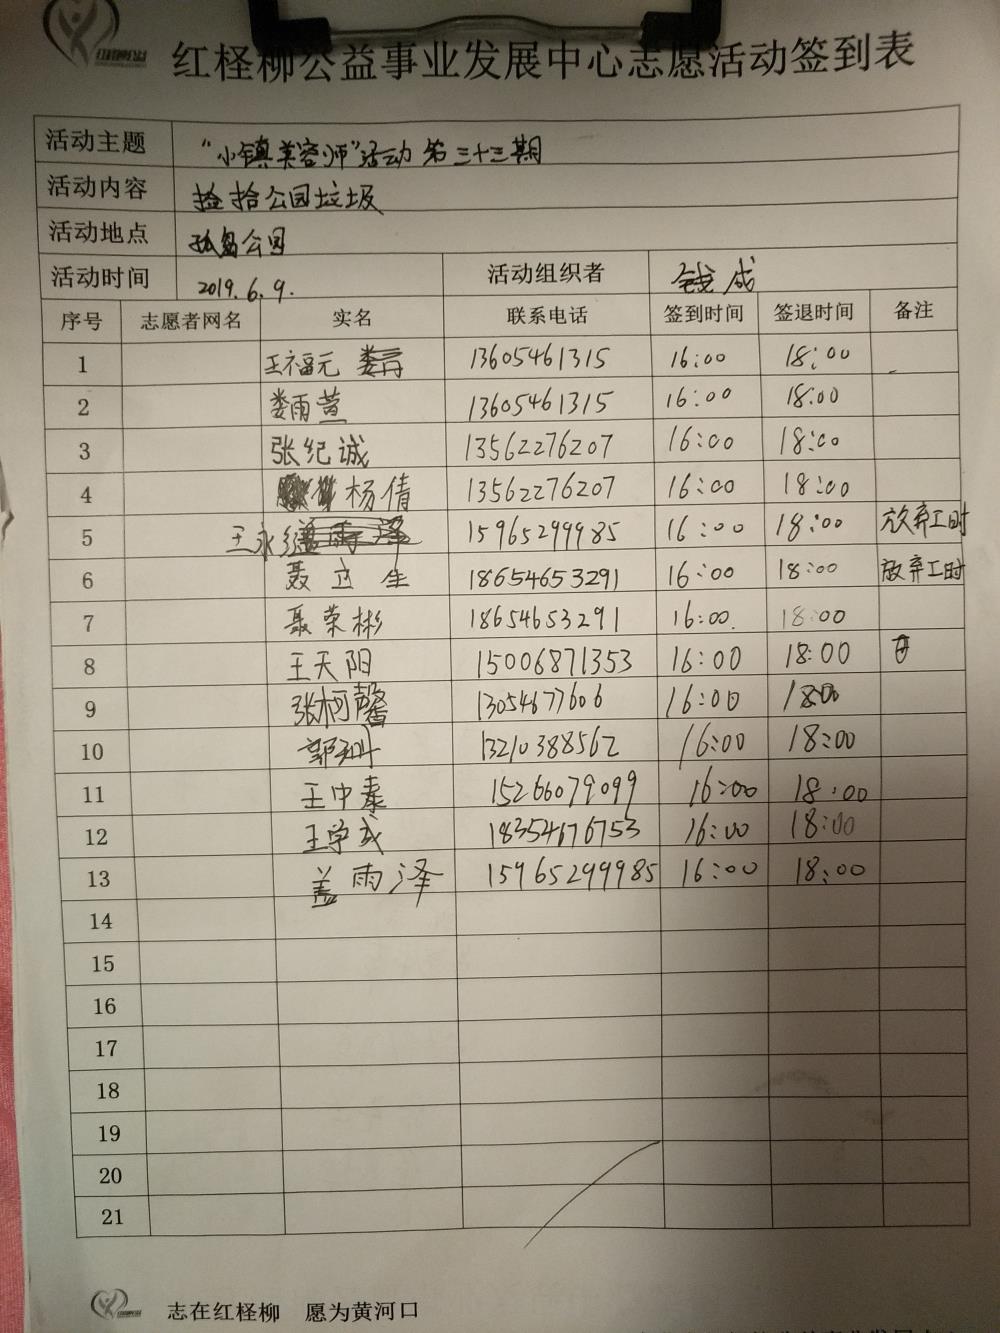 红柽柳公益事业发展中心志愿活动签到表
活动主题 “小镇美容师”活动 第三十三期
活动内容 捡拾公园垃圾
活动地点 孤岛公园
活动时间 2019.6.9. 活动组织者 钱成
序号 志愿者网名 实名 联系电话 签到时间 签退时间 备注
1 王福元 13605461315 16:00 18:00
2 娄雨萱 13605461315 16:00 18:00
3 张纪诚 13562276207 16:00 18:00
4 杨倩 13562276207 16:00 18:00
5 王永 15965299985 16:00 18:00 放弃工时
6 聂立生 18654653291 16:00 18:00 放弃工时
7 聂荣彬 18654653291 16:00. 18:00
8 王天阳 15006871353 16:00 18:00
9 张柯馨 13054677606 16:00 18:00
10 郭 13210388562 16:00 18:00
11 王中秦 15266079099 16:00 18:00
12 王学成 18354676753 16:00 18:00
13 盖雨泽 15965299985 16:00 18:00
14
15
16
17
18
19
20
21
志在红柽柳 愿为黄河口